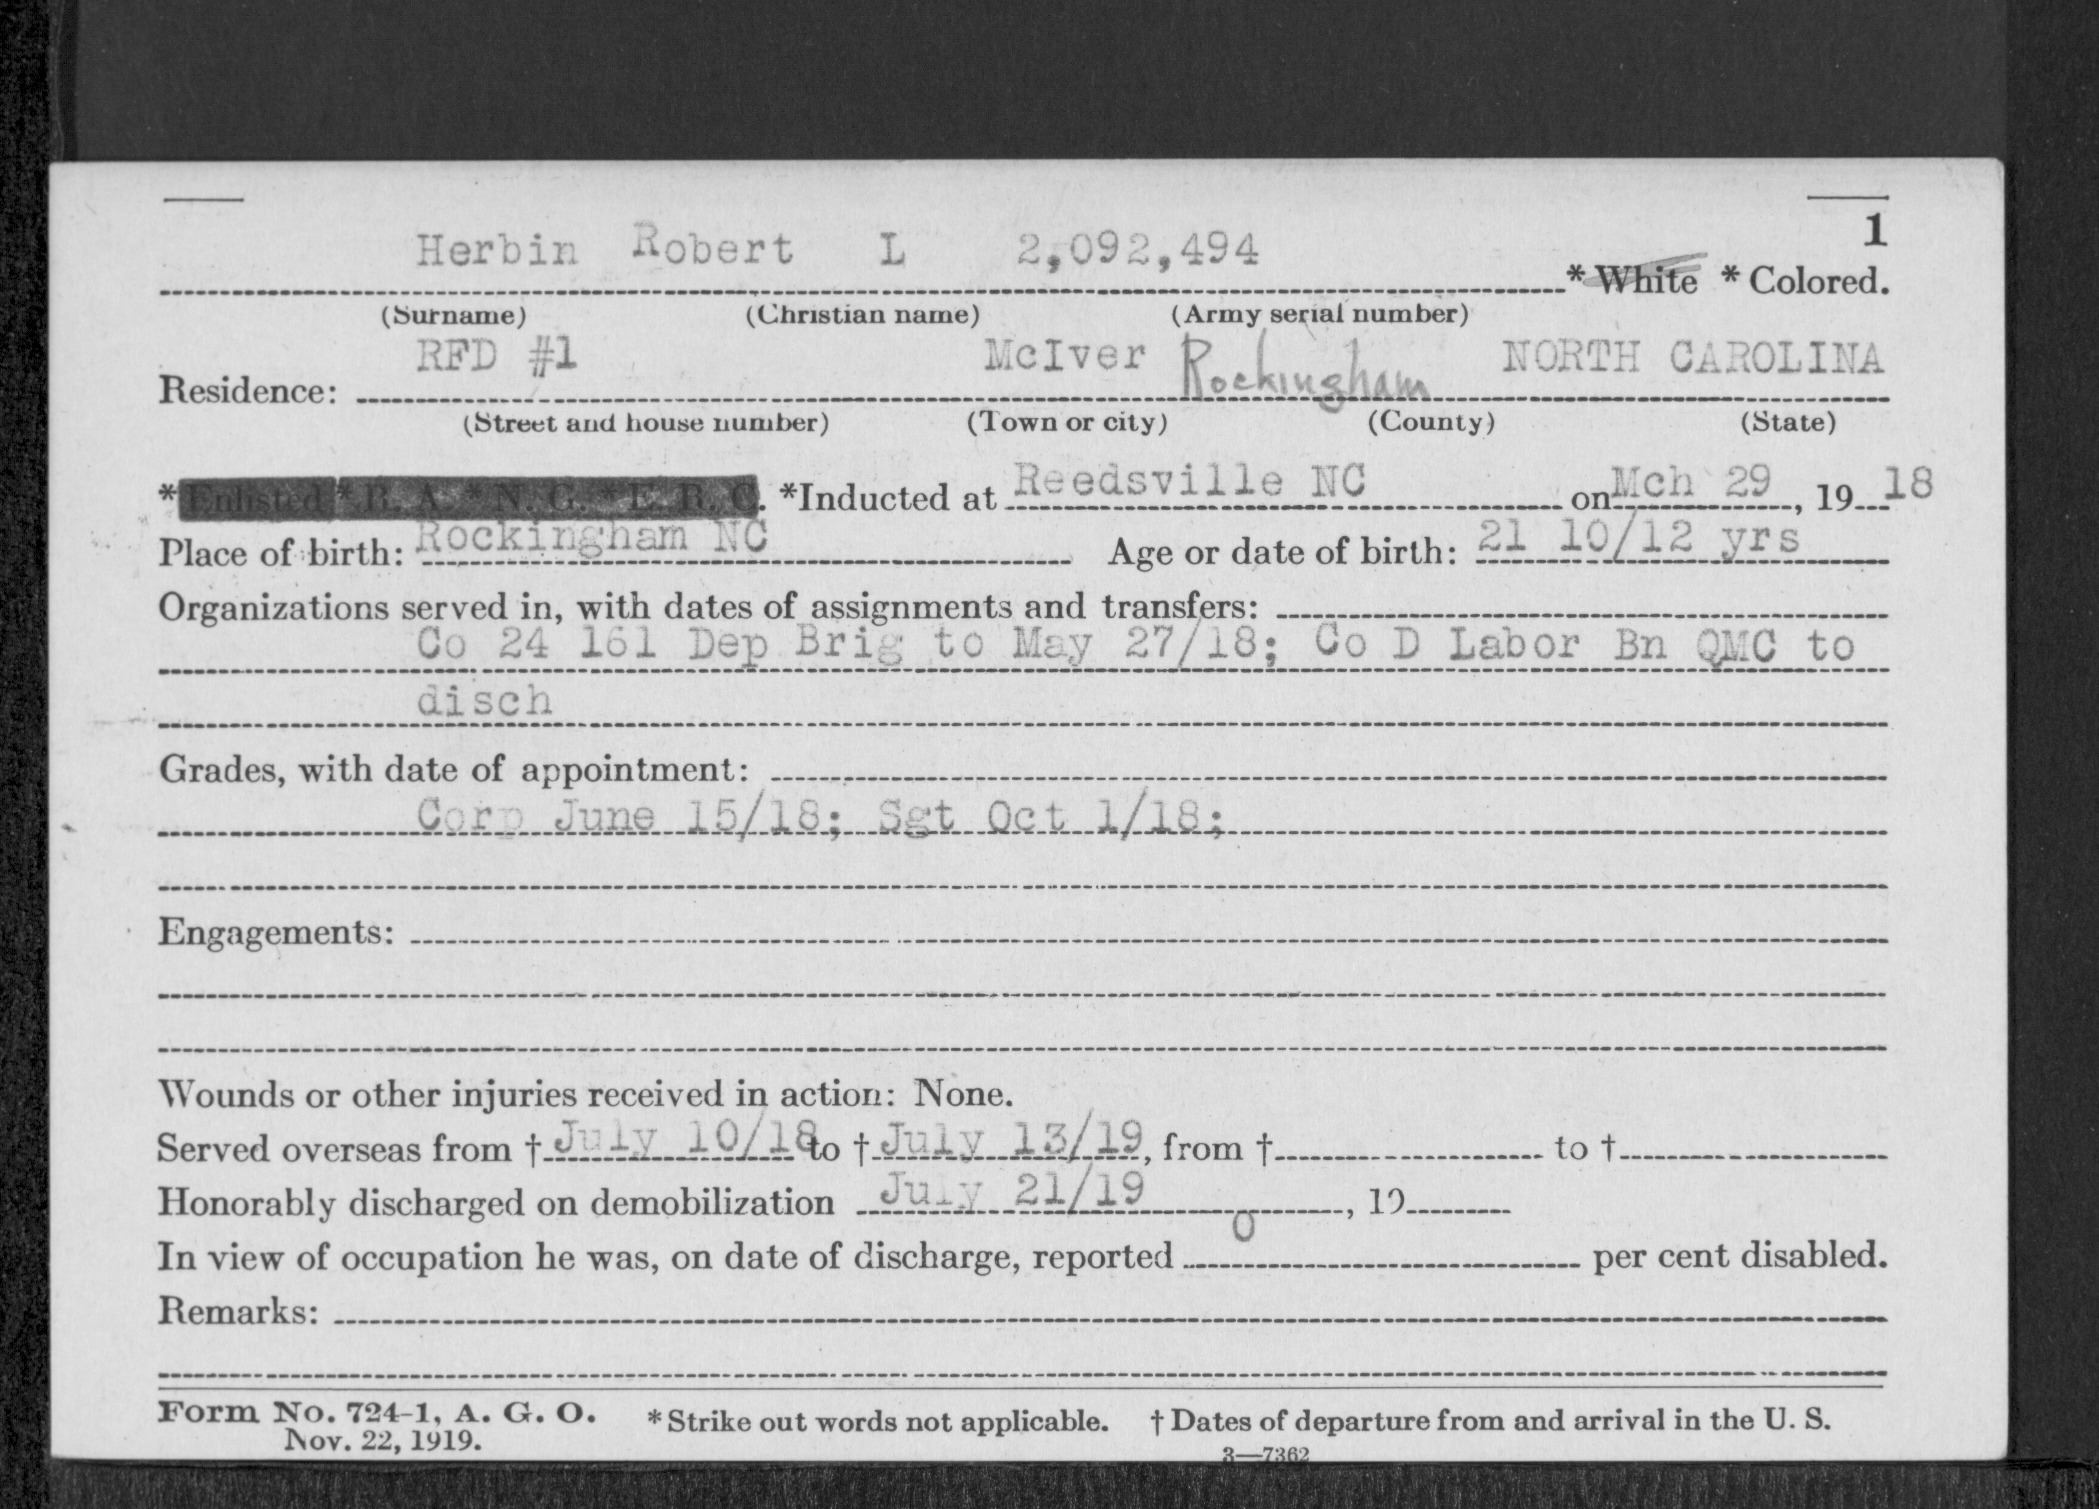 1
Herbin Robert L 2,092,494 * White * Colored.
(Surname) (Christian name) (Army serial number)
RFD #1 McIver Rockingham NORTH CAROLINA
Residence:
(Street and house number) (Town or city) (County) (State)
* Enlisted * R. A. * N. G. * E. R. C. *Inducted at Reedsville NC on Mch 29, 19 18
Place of birth: Rockingham NC Age or date of birth: 21 10/12 yrs
Organizations served in, with dates of assignments and transfers:
Co 24 161 Dep Brig to May 27/18; Co D Labor Bn QMC to
disch
Grades, with date of appointment:
Corp June 15/18; Sgt Oct 1/18;
Engagements:
Wounds or other injuries received in action: None.
Served overseas from † July 10/18 to † July 13/19, from † to †
Honorably discharged on demobilization July 21/19, 19
In view of occupation he was, on date of discharge, reported 0 per cent disabled.
Remarks:
Form No. 724-1, A. G. O. * Strike out words not applicable. † Dates of departure from and arrival in the U. S.
Nov. 22, 1919.
3—7362